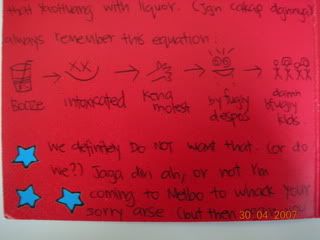 that with liquor. (Jgn cakap
always remember this equation:
Booze intoxicated kena molest by fugly despos damn fugly kids.
We definitely DO NOT want that. (or do
we??) Jaga diri ah, or not I'm
coming to Melbo to whack your
sorry arse (but then
30.04.2007